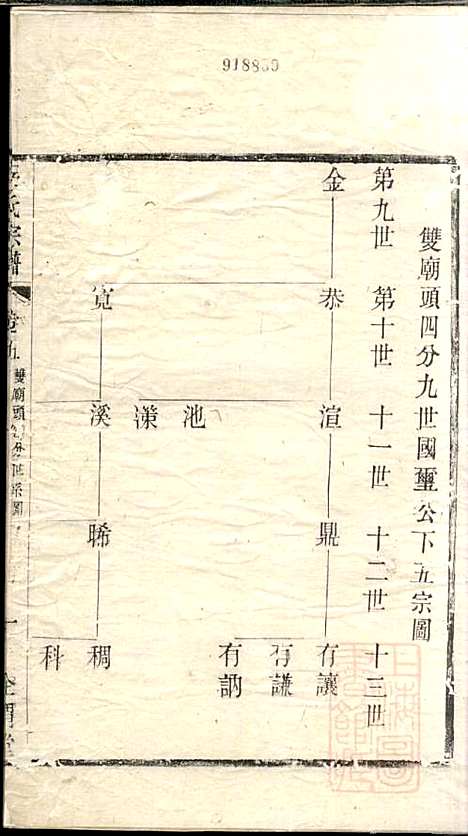 918850
雙廟頭四分九世國璽公下五宗圖
第九世 第十世 十一世 十二世 十三世
金 恭 渲 鼎 有讓
有謙
池 有訥
濴
寛 溪 晞 稠
科
氏宗譜 卷五 雙廟頭 分世系圖 一